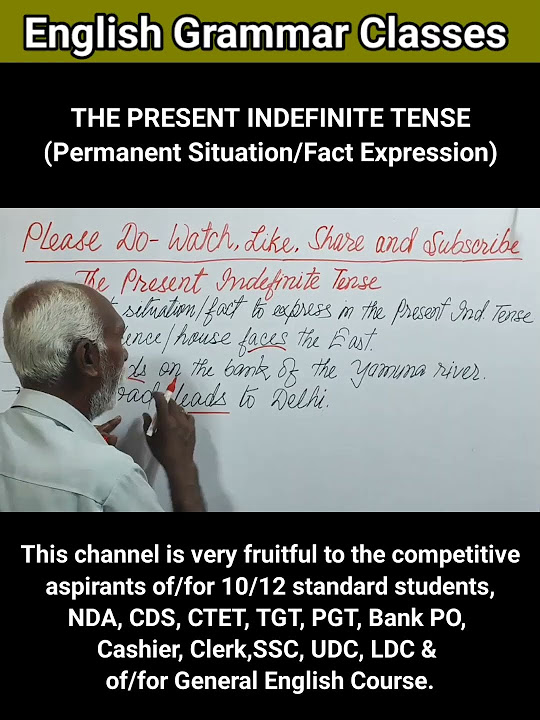 English Grammar Classes
THE PRESENT INDEFINITE TENSE
(Permanent Situation/Fact Expression)
Please Do- Watch, Like, Share and Subscribe
The Present Indefinite Tense
situation/fact to express in the Present Ind Tense
/house faces the East.
on the bank of the Yamuna river.
leads to Delhi.
This channel is very fruitful to the competitive
aspirants of/for 10/12 standard students,
NDA, CDS, CTET, TGT, PGT, Bank PO,
Cashier, Clerk,SSC, UDC, LDC &
of/for General English Course.